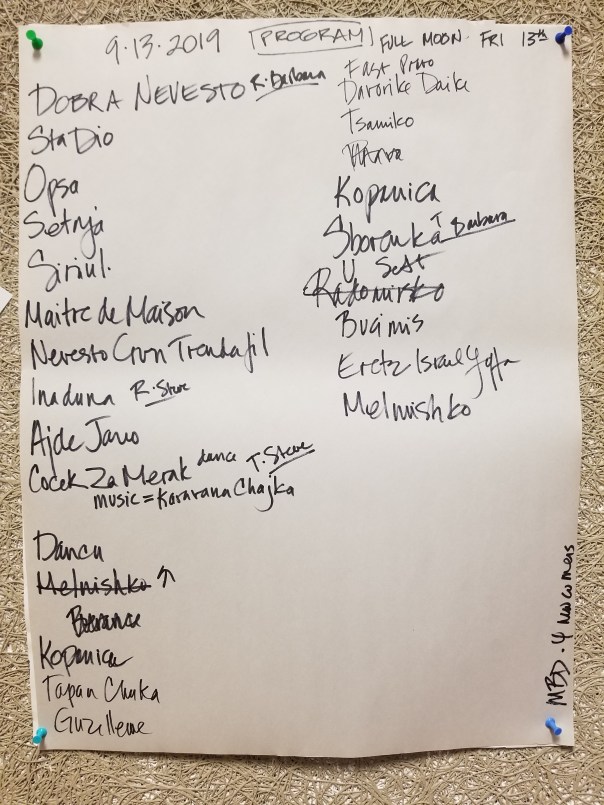 9.13.2019 PROGRAM FULL MOON. FRI 13th
DOBRA NEVESTO R. Barbara
Sta Dio
Opsa
Setnja
Siriul.
Maitre de Maison
Nevesto Crvn Trendafil
Inaduna R. Steve
Ajde Jano
Cocek Za Merak dance T. Steve
music = Kararana Chajka
Dancu
Melnishko
Kopanica
Tapan Chuka
Guzelleme
Fast Pravo
Davorike Dajke
Tsamiko
Kopanica
Sborenka T Barbara
Set
Radomirsko
Bucimis
Eretz Israel Yaffa
Melnishko
MBD. 4 newcomers